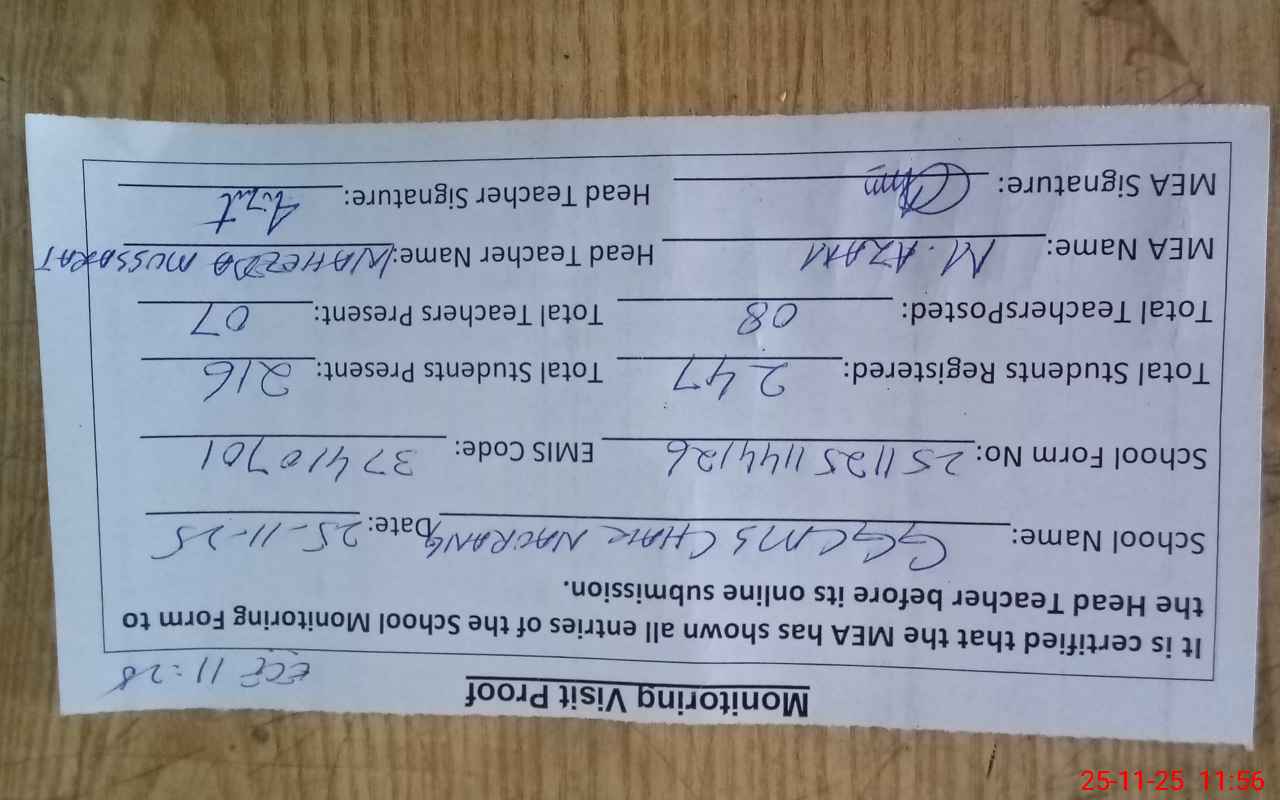 Monitoring Visit Proof
ECE 11:28
It is certified that the MEA has shown all entries of the School Monitoring Form to
the Head Teacher before its online submission.
School Name: GGCMS CHAK NAGRANG Date: 25-11-25
School Form No: 251125114126 EMIS Code: 37410701
Total Students Registered: 247 Total Students Present: 216
Total TeachersPosted: 08 Total Teachers Present: 07
MEA Name: M. AZAM Head Teacher Name: WAHEEDA MUSSARAT
MEA Signature: Head Teacher Signature:
25-11-25 11:56